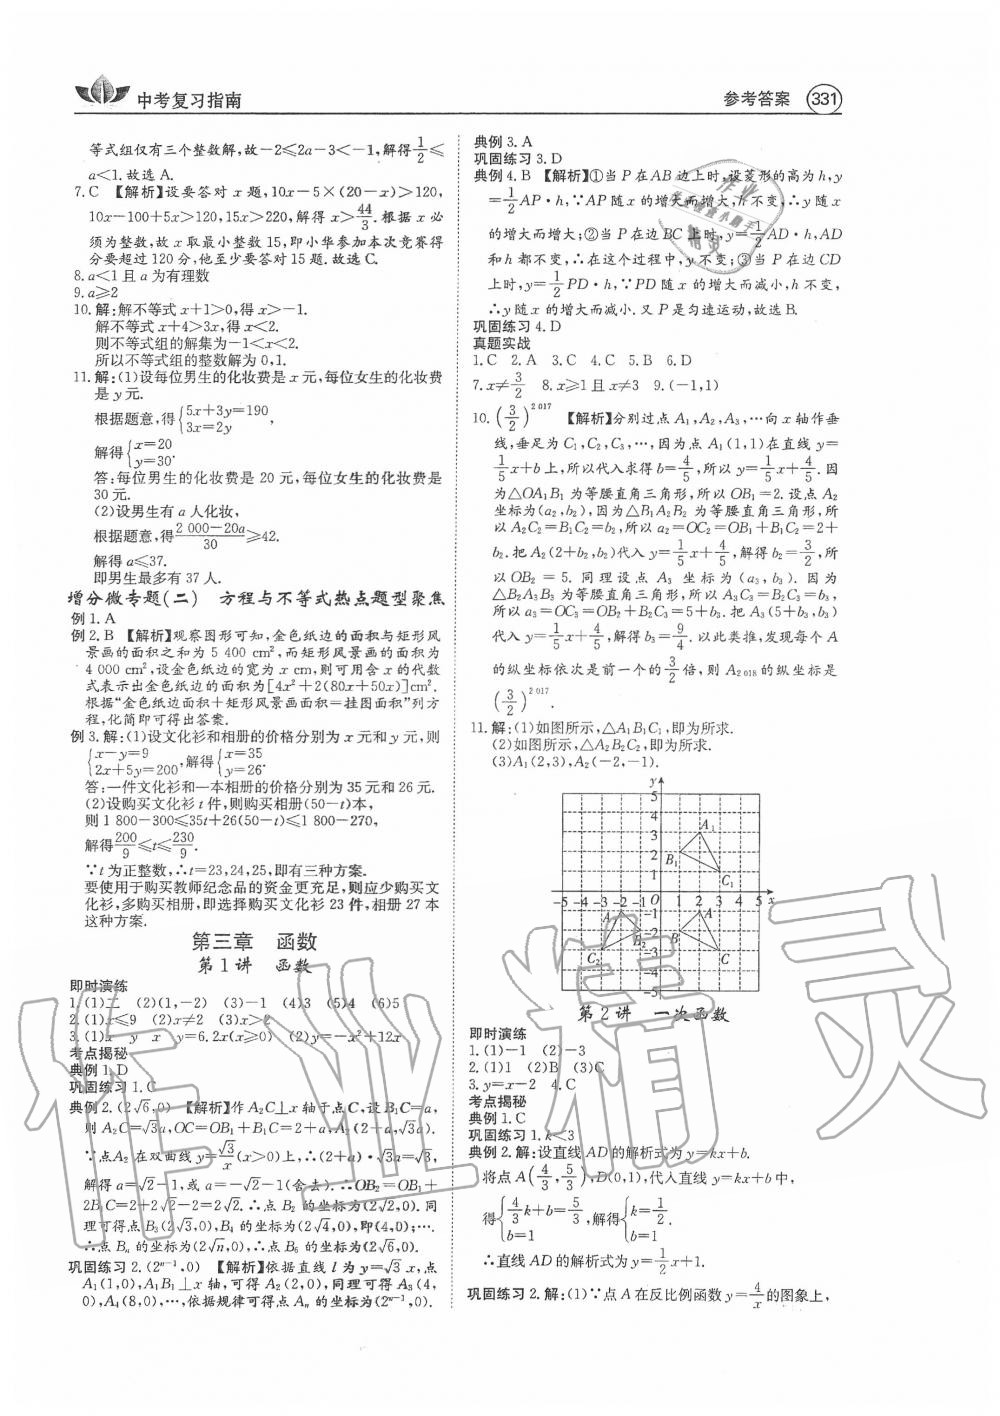 中考复习指南
参考答案 331
等式组仅有三个整数解,故-2≤2a-3<-1,解得1/2≤
a<1.故选A.
7.C 【解析】设要答对x题,10x-5×(20-x)>120,
10x-100+5x>120,15x>220,解得x>44/3.根据x必
须为整数,故x取最小整数15,即小华参加本次竞赛得
分要超过120分,他至少要答对15题.故选C.
8.a<1且a为有理数
9.a≥2
10.解:解不等式x+1>0,得x>-1.
解不等式x+4>3x,得x<2.
则不等式组的解集为-1<x<2.
所以不等式组的整数解为0,1.
11.解:(1)设每位男生的化妆费是x元,每位女生的化妆费
是y元.
根据题意,得{5x+3y=190, 3x=2y
解得{x=20 y=30.
答:每位男生的化妆费是20元,每位女生的化妆费是
30元.
(2)设男生有a人化妆,
根据题意,得(2 000-20a)/30≥42.
解得a≤37.
即男生最多有37人.
增分微专题(二) 方程与不等式热点题型聚焦
例1.A
例2.B 【解析】观察图形可知,金色纸边的面积与矩形风
景画的面积之和为5 400 cm²,而矩形风景画的面积为
4 000 cm²,设金色纸边的宽为x cm,则可用含x的代数
式表示出金色纸边的面积为[4x²+2(80x+50x)]cm².
根据“金色纸边面积+矩形风景画面积=挂图面积”列方
程,化简即可得出答案.
例3.解:(1)设文化衫和相册的价格分别为x元和y元,则
{x-y=9 2x+5y=200,解得{x=35 y=26.
答:一件文化衫和一本相册的价格分别为35元和26元.
(2)设购买文化衫t件,则购买相册(50-t)本,
则1 800-300≤35t+26(50-t)≤1 800-270,
解得200/9≤t≤230/9.
∵t为正整数,∴t=23,24,25,即有三种方案.
要使用于购买教师纪念品的资金更充足,则应少购买文
化衫,多购买相册,即选择购买文化衫23件,相册27本
这种方案.
第三章 函数
第1讲 函数
即时演练
1.(1)二 (2)(1,-2) (3)-1 (4)3 (5)4 (6)5
2.(1)x≤9 (2)x≠2 (3)x>2
3.(1)x y x y=6.2x(x≥0) (2)y=-x²+12x
考点揭秘
典例1.D
巩固练习1.C
典例2.(2√6,0) 【解析】作A₂C⊥x轴于点C,设B₁C=a,
则A₂C=√3a,OC=OB₁+B₁C=2+a,A₂(2+a,√3a).
∵点A₂在双曲线y=√3/x(x>0)上,∴(2+a)·√3a=√3,
解得a=√2-1,或a=-√2-1(舍去).∴OB₂=OB₁+
2B₁C=2+2√2-2=2√2.∴点B₂的坐标为(2√2,0).同
理可得点B₃(2√3,0),B₄的坐标为(2√4,0),即(4,0);….
∴点Bₙ的坐标为(2√n,0),∴点B₆的坐标为(2√6,0).
巩固练习2.(2ⁿ⁻¹,0) 【解析】依据直线l为y=√3x,点
A₁(1,0),A₁B₁⊥x轴,可得A₂(2,0),同理可得A₃(4,
0),A₄(8,0),…,依据规律可得点Aₙ的坐标为(2ⁿ⁻¹,0).
典例3.A
巩固练习3.D
典例4.B 【解析】①当P在AB边上时,设菱形的高为h,y
=1/2AP·h,∵AP随x的增大而增大,h不变,∴y随x
的增大而增大;②当P在边BC上时,y=1/2AD·h,AD
和h都不变,∴在这个过程中,y不变;③当P在边CD
上时,y=1/2PD·h,∵PD随x的增大而减小,h不变,
∴y随x的增大而减小.又P是匀速运动,故选B.
巩固练习4.D
真题实战
1.C 2.A 3.C 4.C 5.B 6.D
7.x≠3/2 8.x≥1且x≠3 9.(-1,1)
10.(3/2)²⁰¹⁷ 【解析】分别过点A₁,A₂,A₃,…向x轴作垂
线,垂足为C₁,C₂,C₃,…,因为点A₁(1,1)在直线y=
1/5x+b上,所以代入求得b=4/5,所以y=1/5x+4/5.因
为△OA₁B₁为等腰直角三角形,所以OB₁=2.设点A₂
坐标为(a₂,b₂),因为△B₁A₂B₂为等腰直角三角形,所
以A₂C₂=B₁C₂=b₂,所以a₂=OC₂=OB₁+B₁C₂=2+
b₂.把A₂(2+b₂,b₂)代入y=1/5x+4/5,解得b₂=3/2,所
以OB₂=5.同理设点A₃坐标为(a₃,b₃),因为
△B₂A₃B₃为等腰直角三角形,所以A₃C₃=B₂C₃=b₃,
所以a₃=OC₃=OB₂+B₂C₃=5+b₃.把A₃(5+b₃,b₃)
代入y=1/5x+4/5,解得b₃=9/4.以此类推,发现每个A
的纵坐标依次是前一个的3/2倍,则A₂₀₁₈的纵坐标是
(3/2)²⁰¹⁷
11.解:(1)如图所示,△A₁B₁C₁,即为所求.
(2)如图所示,△A₂B₂C₂,即为所求.
(3)A₁(2,3),A₂(-2,-1).
y
5
4
3
2
1
A₁
B₁
C₁
-5-4-3-2-1 O 1 2 3 4 5 x
-1
-2
-3
-4
-5
A
B
C
B₂
C₂
第2讲 一次函数
即时演练
1.(1)-1 (2)-3
2.(1)1 (2)B (3)C
3.y=x-2 4.C
考点揭秘
典例1.C
巩固练习1.k<3
典例2.解:设直线AD的解析式为y=kx+b.
将点A(4/3,5/3),D(0,1),代入直线y=kx+b中,
得{4/3k+b=5/3, b=1 解得{k=1/2, b=1
∴直线AD的解析式为y=1/2x+1.
巩固练习2.解:(1)∵点A在反比例函数y=4/x的图象上,
作业精灵